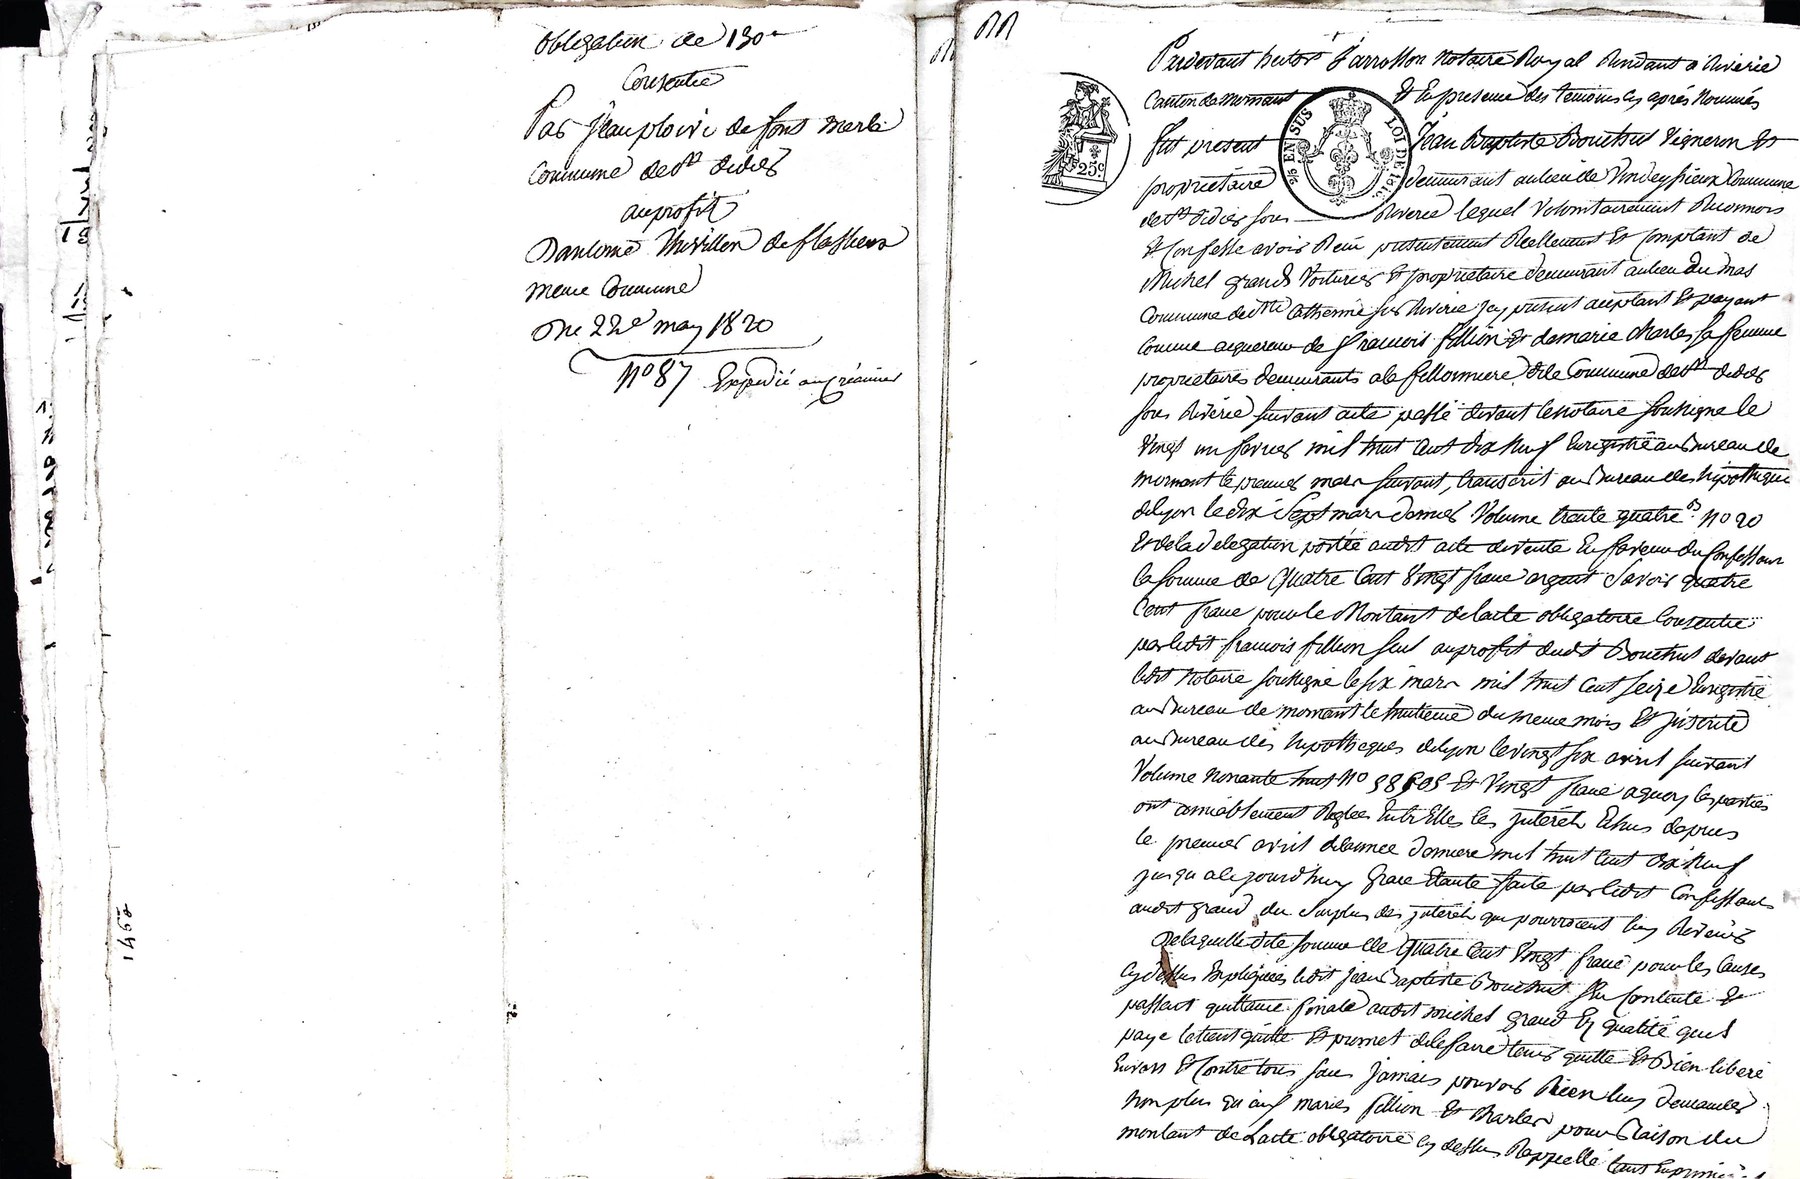 obligation de 130 f
Consentie
Par Jean ploivi de font merle
Commune de St didier
au profit
Dantoine Thivillon de flassieux
meme Commune
Du 22e may 1820
No 87 Expedié au Créancier
1458
Pardevant hector Jarrosson Notaire Royal Residant à Riverie
Canton de mornant Et En presence des temoins cy après Nommés
fut present Jean Baptiste Bouchut Vigneron Et
proprietaire demeurant au lieu de Commune
de St didier sous Riverie lequel Volontairement Reconnois
Et Confesse avoir Reçu presentement Reellement Et Comptant de
Michel grand Voiturier Et proprietaire demeurant au lieu du mas
Commune de Ste Catherine sur Riverie Icy present acceptant Et payant
Comme acquereur de francois fillion Et de marie charles sa femme
proprietaires demeurants a la fillonniere dite Commune de St didier
sous Riverie suivant acte passé devant le notaire soussigné le
Vingt un fevrier mil huit Cent dix Neuf Enregistré au Bureau de
mornant le premier mars suivant, transcrit au Bureau des hipotheques
de lyon le dix Sept mars dernier Volume trente quatre No 20
Et de la delegation portée audit acte de vente En faveur du Confessant
la somme de Quatre Cent Vingt franc argent Savoir quatre
Cent franc pour le Montant de lacte obligatoire Consentie
par ledit francois fillion seul au profit dudit Bouchut devant
ledit Notaire soussigné le six mars mil huit Cent seize Enregistré
au Bureau de mornant le huitieme du meme mois Et Inscrite
au Bureau des hipotheques de lyon le vingt six avril suivant
Volume Nonante huit No Et Vingt franc a quoy les parties
ont amiablement Reglees Entr Elles les Interets Echus depuis
le premier avril de lannee derniere mil huit Cent dix Neuf
jusqu a ce jourdhuy grace Etante faite par ledit Confessant
audit grand du Surplus des Interets qui pourroient luy Revenir
De laquelle dite somme de Quatre Cent Vingt franc pour les Causes
cy dessus Expliquées ledit Jean Baptiste Bouchut s'En Contente Et
passant quittance finale audit michel grand En qualité quil
paye le tient quitte Et promet de le faire tenir quitte Et Bien libéré
Envers Et Contre tous sans Jamais pouvoir Rien luy demander
Non plus qu aux maries fillion Et charles pour Raison du
montant de lacte obligatoire cy dessus Rappellé tant
25 c
EN SUS
LOI DE 1816